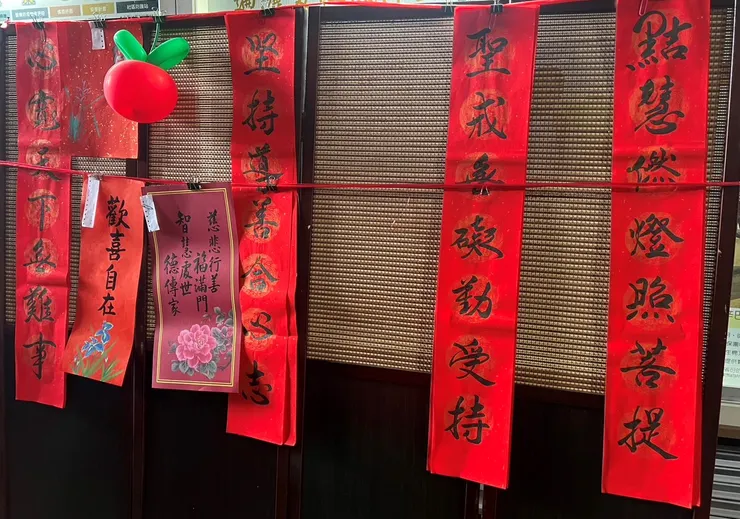 點慧燃燈照菩提
聖戒無礙勤受持
堅持導善合心志
慈悲行善
福滿門
智慧處世
德傳家
歡喜自在
心寬天下無難事